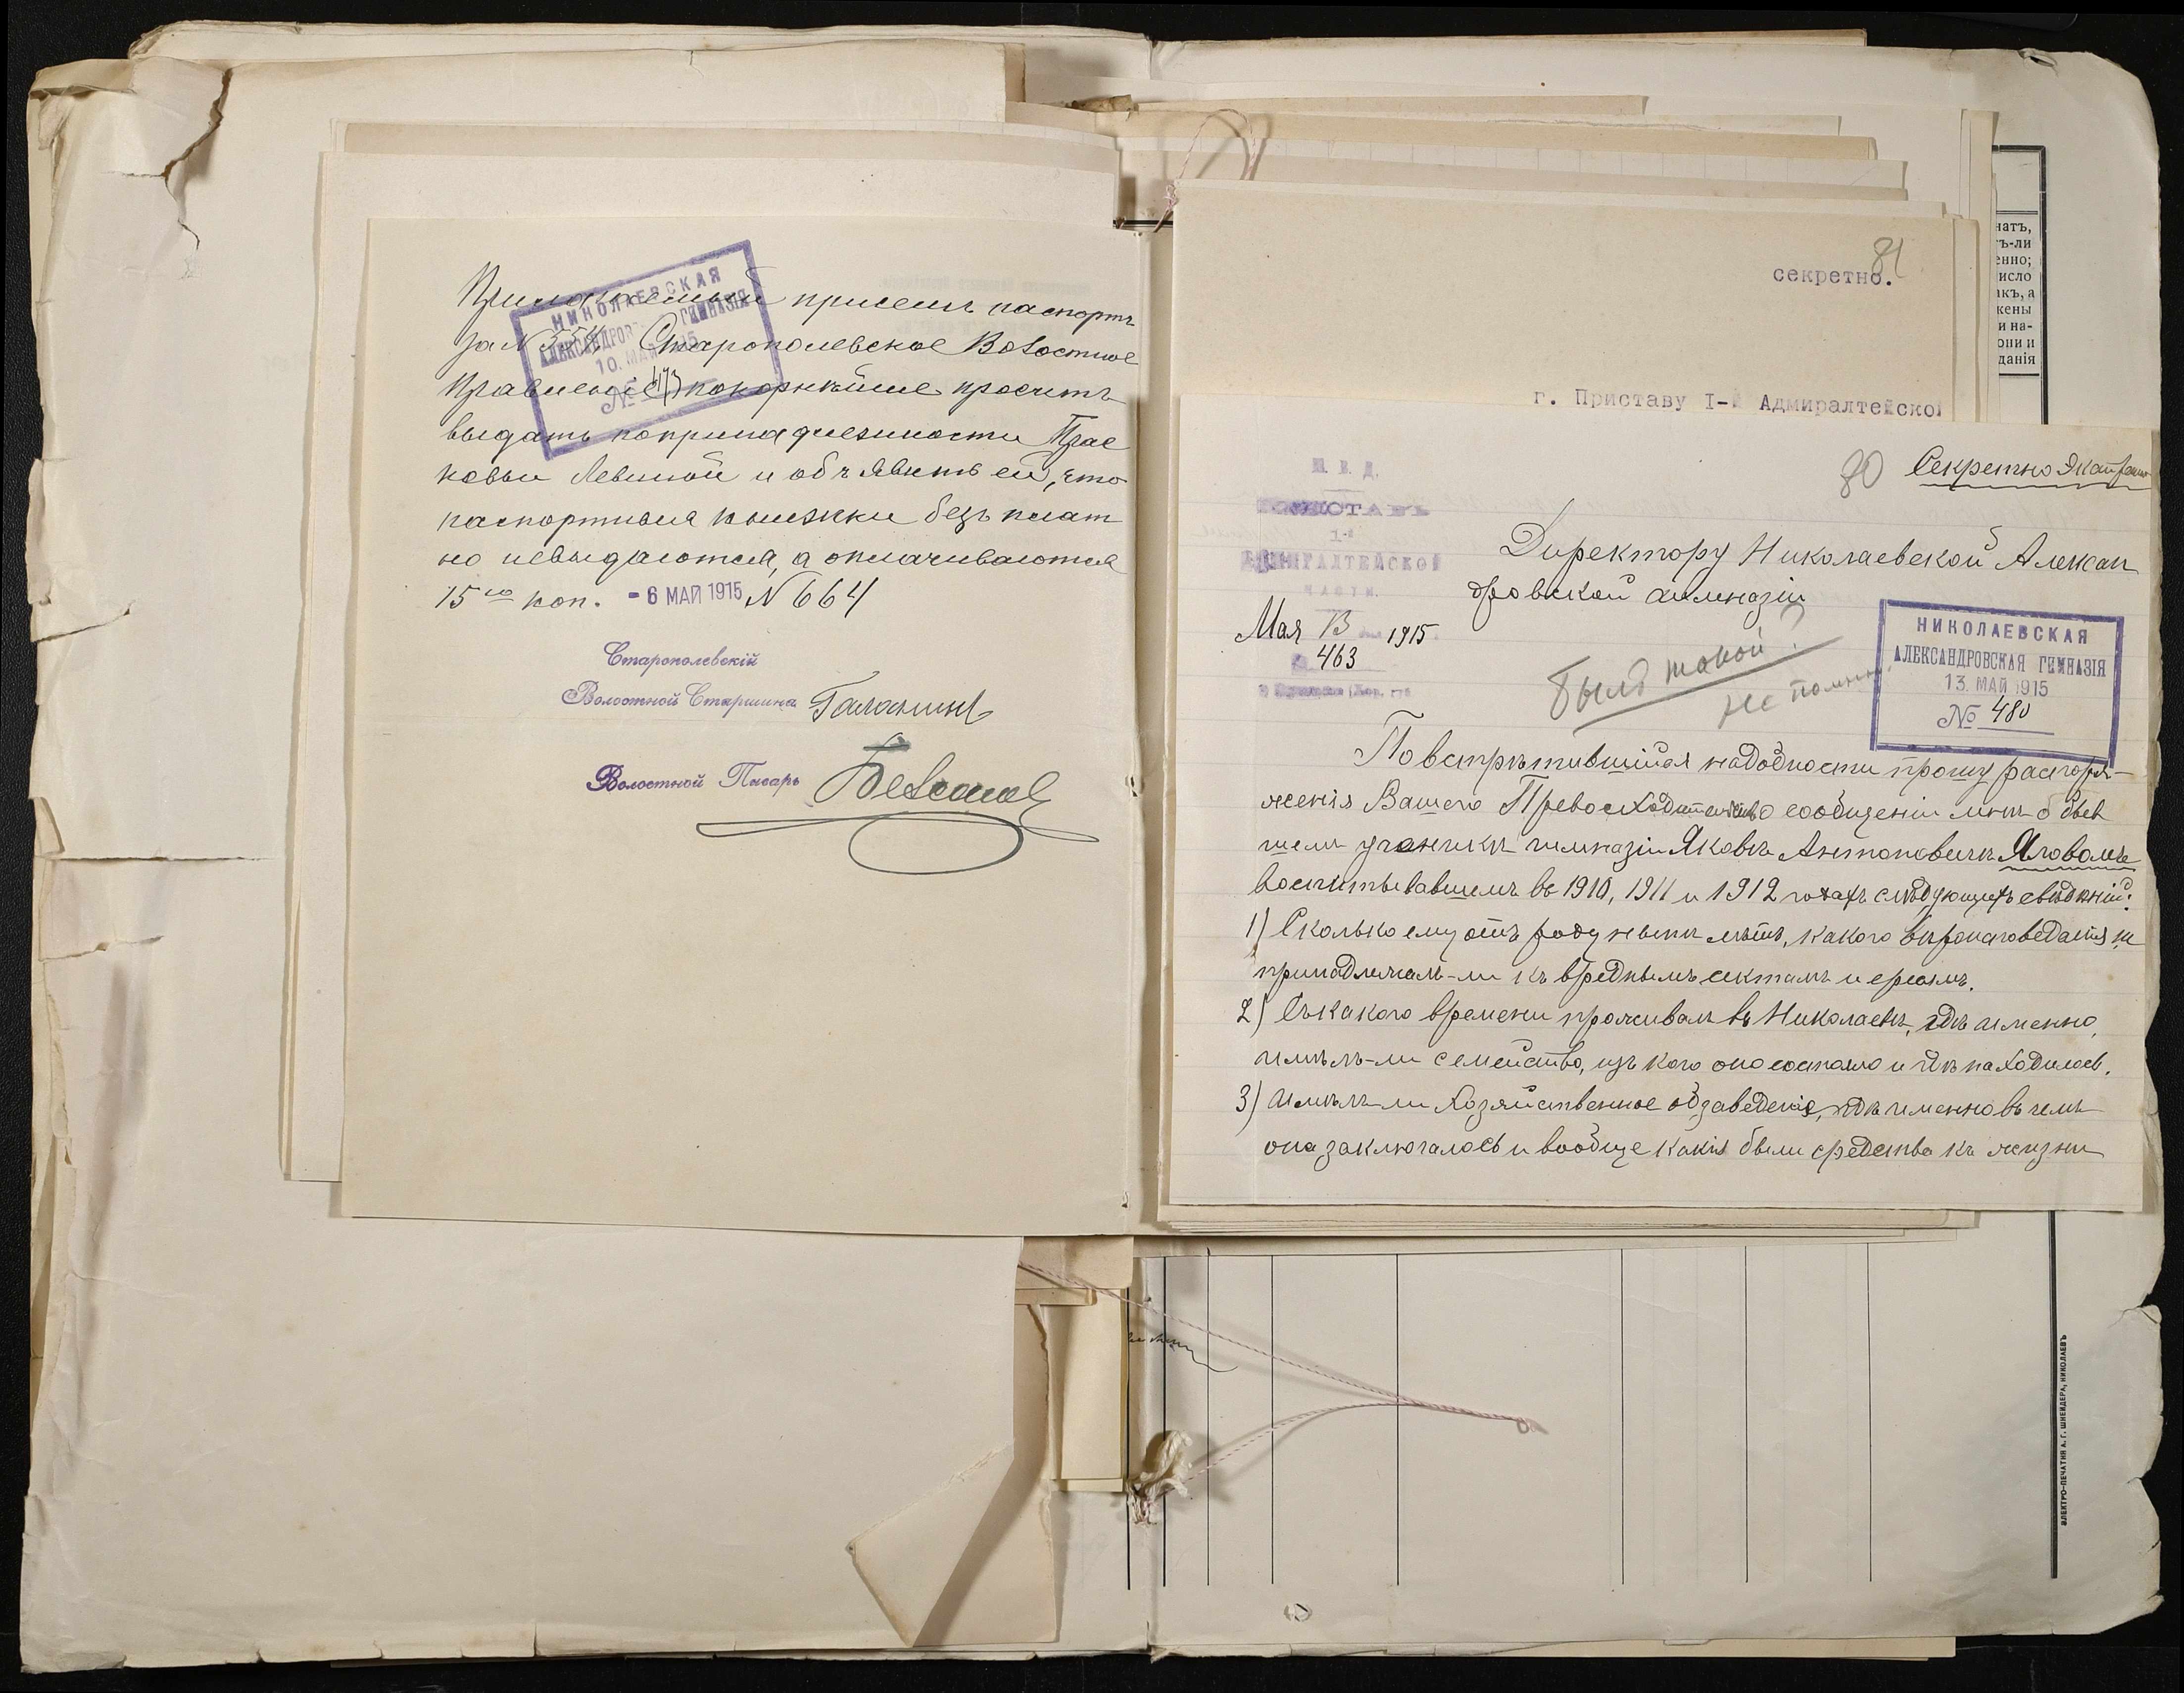 Прилагаемый при семъ паспортъ
за № 358 Старополевское Волостное
Правленіе покорнѣйше проситъ
выдать по принадлежности Прас
ковьи Левиной и объявить ей, что
паспортныя книжки безъ плат
но невыдаются, а оплачиваются
15ю коп. - 6 МАЙ 1915 № 664
НИКОЛАЕВСКАЯ
АЛЕКСАНДРОВ ГИМНАЗІЯ
10. МАЙ 1915
№ 473
Старополевскій
Волостной Старшина Галанинъ
Волостной Писарь
81
секретно.
г. Приставу I-й Адмиралтейской
80 Секретно
М. В. Д.
ПРИСТАВЪ
1-й
АДМИРАЛТЕЙСКОЙ
ЧАСТИ.
Мая 13 1915
463
Директору Николаевской Алексан
дровской гимназіи
былъ такой?
не помню
НИКОЛАЕВСКАЯ
АЛЕКСАНДРОВСКАЯ ГИМНАЗІЯ
13. МАЙ 1915
№ 480
По встрѣтившійся надобности прошу распоря-
женія Вашего Превосходительства о сообщеніи мнѣ о быв
шемъ ученикѣ гимназіи Яковѣ Антоновичѣ Яловомъ
воспитывавшемъ въ 1910, 1911 и 1912 годахъ слѣдующихъ свѣдѣній:
1) Сколько ему отъ роду нынѣ лѣтъ, какого вѣроисповеданія, не
принадлежалъ-ли къ вреднымъ сектамъ и ересямъ.
2) Съ какого времени проживалъ въ Николаевѣ, гдѣ именно,
имѣлъ-ли семейство, изъ кого оно состояло и гдѣ находилось.
3) Имѣлъ-ли хозяйственное обзаведеніе, гдѣ именно въ чемъ
она заключалось и вообще какія были средства къ жизни
натъ,
ъ-ли
енно;
исло
икъ, а
жены
и на-
они и
данія
ЭЛЕКТРО-ПЕЧАТНЯ А. Г. ШНЕЙДЕРА, НИКОЛАЕВЪ